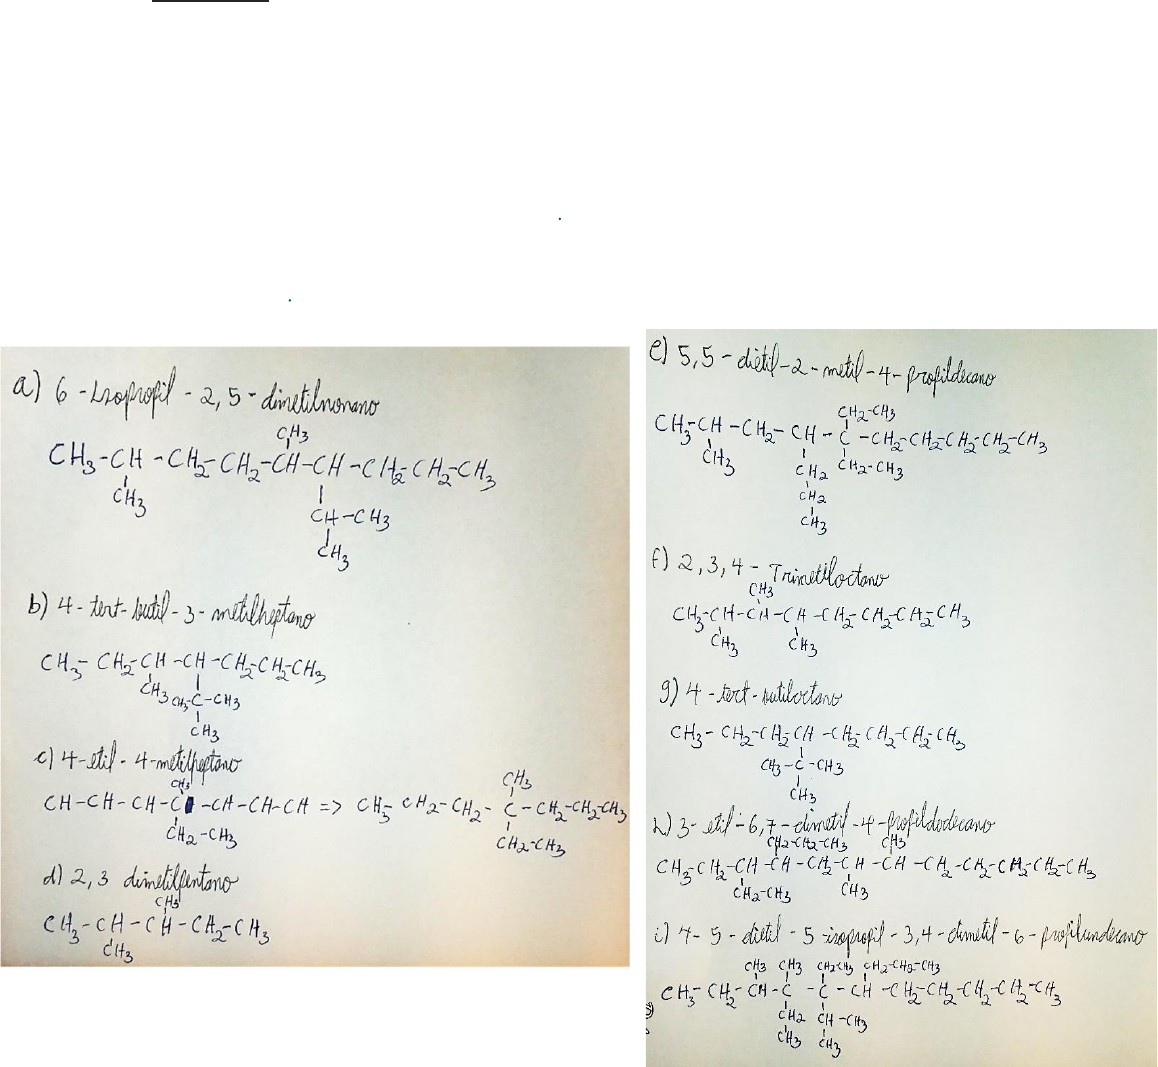 a) 6 - Isopropil - 2,5 - dimetilnonano
CH3
CH3-CH-CH2-CH2-CH-CH-CH2-CH2-CH3
CH3
CH-CH3
CH3
b) 4 - tert - butil - 3 - metilheptano
CH3-CH2-CH-CH-CH2-CH2-CH3
CH3 CH3-C-CH3
CH3
c) 4-etil - 4-metilheptano
CH3
CH-CH-CH-C-CH-CH-CH => CH3-CH2-CH2-C-CH2-CH2-CH3
CH3
CH2-CH3
CH2-CH3
d) 2,3 dimetilpentano
CH3
CH3-CH-CH-CH2-CH3
CH3
e) 5,5 - dietil - 2 - metil - 4 - propildecano
CH2-CH3
CH3-CH-CH2-CH-C-CH2-CH2-CH2-CH2-CH3
CH3 CH2 CH2-CH3
CH2
CH3
f) 2,3,4 - Trimetiloctano
CH3
CH3-CH-CH-CH-CH2-CH2-CH2-CH3
CH3 CH3
g) 4 - tert - butiloctano
CH3-CH2-CH2-CH-CH2-CH2-CH2-CH3
CH3-C-CH3
CH3
h) 3 - etil - 6,7 - dimetil - 4 - propildodecano
CH2-CH2-CH3 CH3
CH3-CH2-CH-CH-CH2-CH-CH-CH2-CH2-CH2-CH2-CH3
CH2-CH3 CH3
i) 4 - 5 - dietil - 5 - isopropil - 3,4 - dimetil - 6 - propilundecano
CH3 CH3 CH2CH3 CH2-CH2-CH3
CH3-CH2-CH-C-C-CH-CH2-CH2-CH2-CH2-CH3
CH2 CH-CH3
CH3 CH3